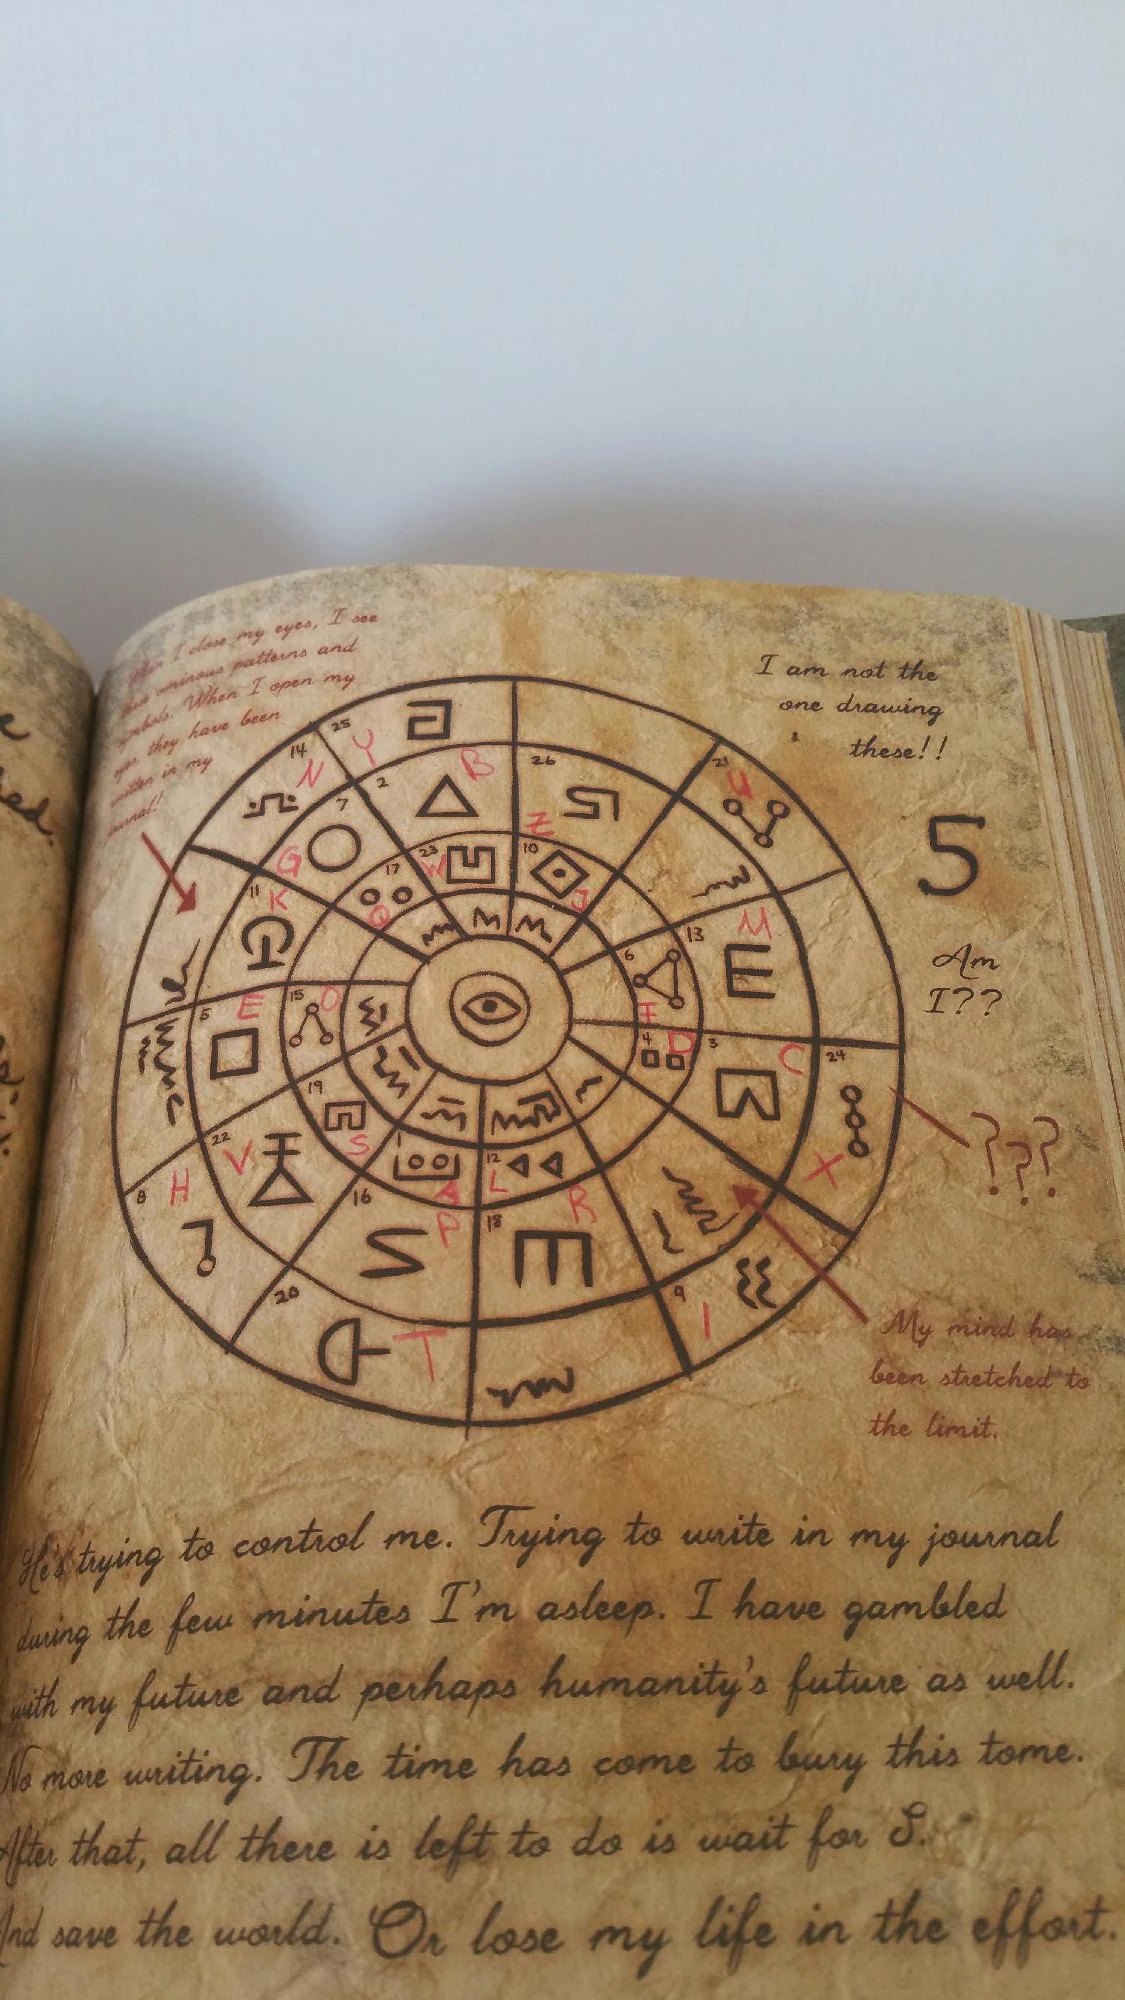 I close my eyes, I see
ominous patterns and
When I open my
eyes, they have been
written in my
journal!
I am not the
one drawing
these!!
5
Am
I??
25 Y
14 N
2 B
26 Z
21 U
7 G
23 W
10 J
17 Q
11 K
13 M
6 F
5 E
15 O
4 D
3 C
24 X
19 S
22 V
1 A
12 L
8 H
16 P
18 R
9 I
20 T
???
My mind has
been stretched to
the limit.
He's trying to control me. Trying to write in my journal
during the few minutes I'm asleep. I have gambled
with my future and perhaps humanity's future as well.
No more writing. The time has come to bury this tome.
After that, all there is left to do is wait for S.
And save the world. Or lose my life in the effort.